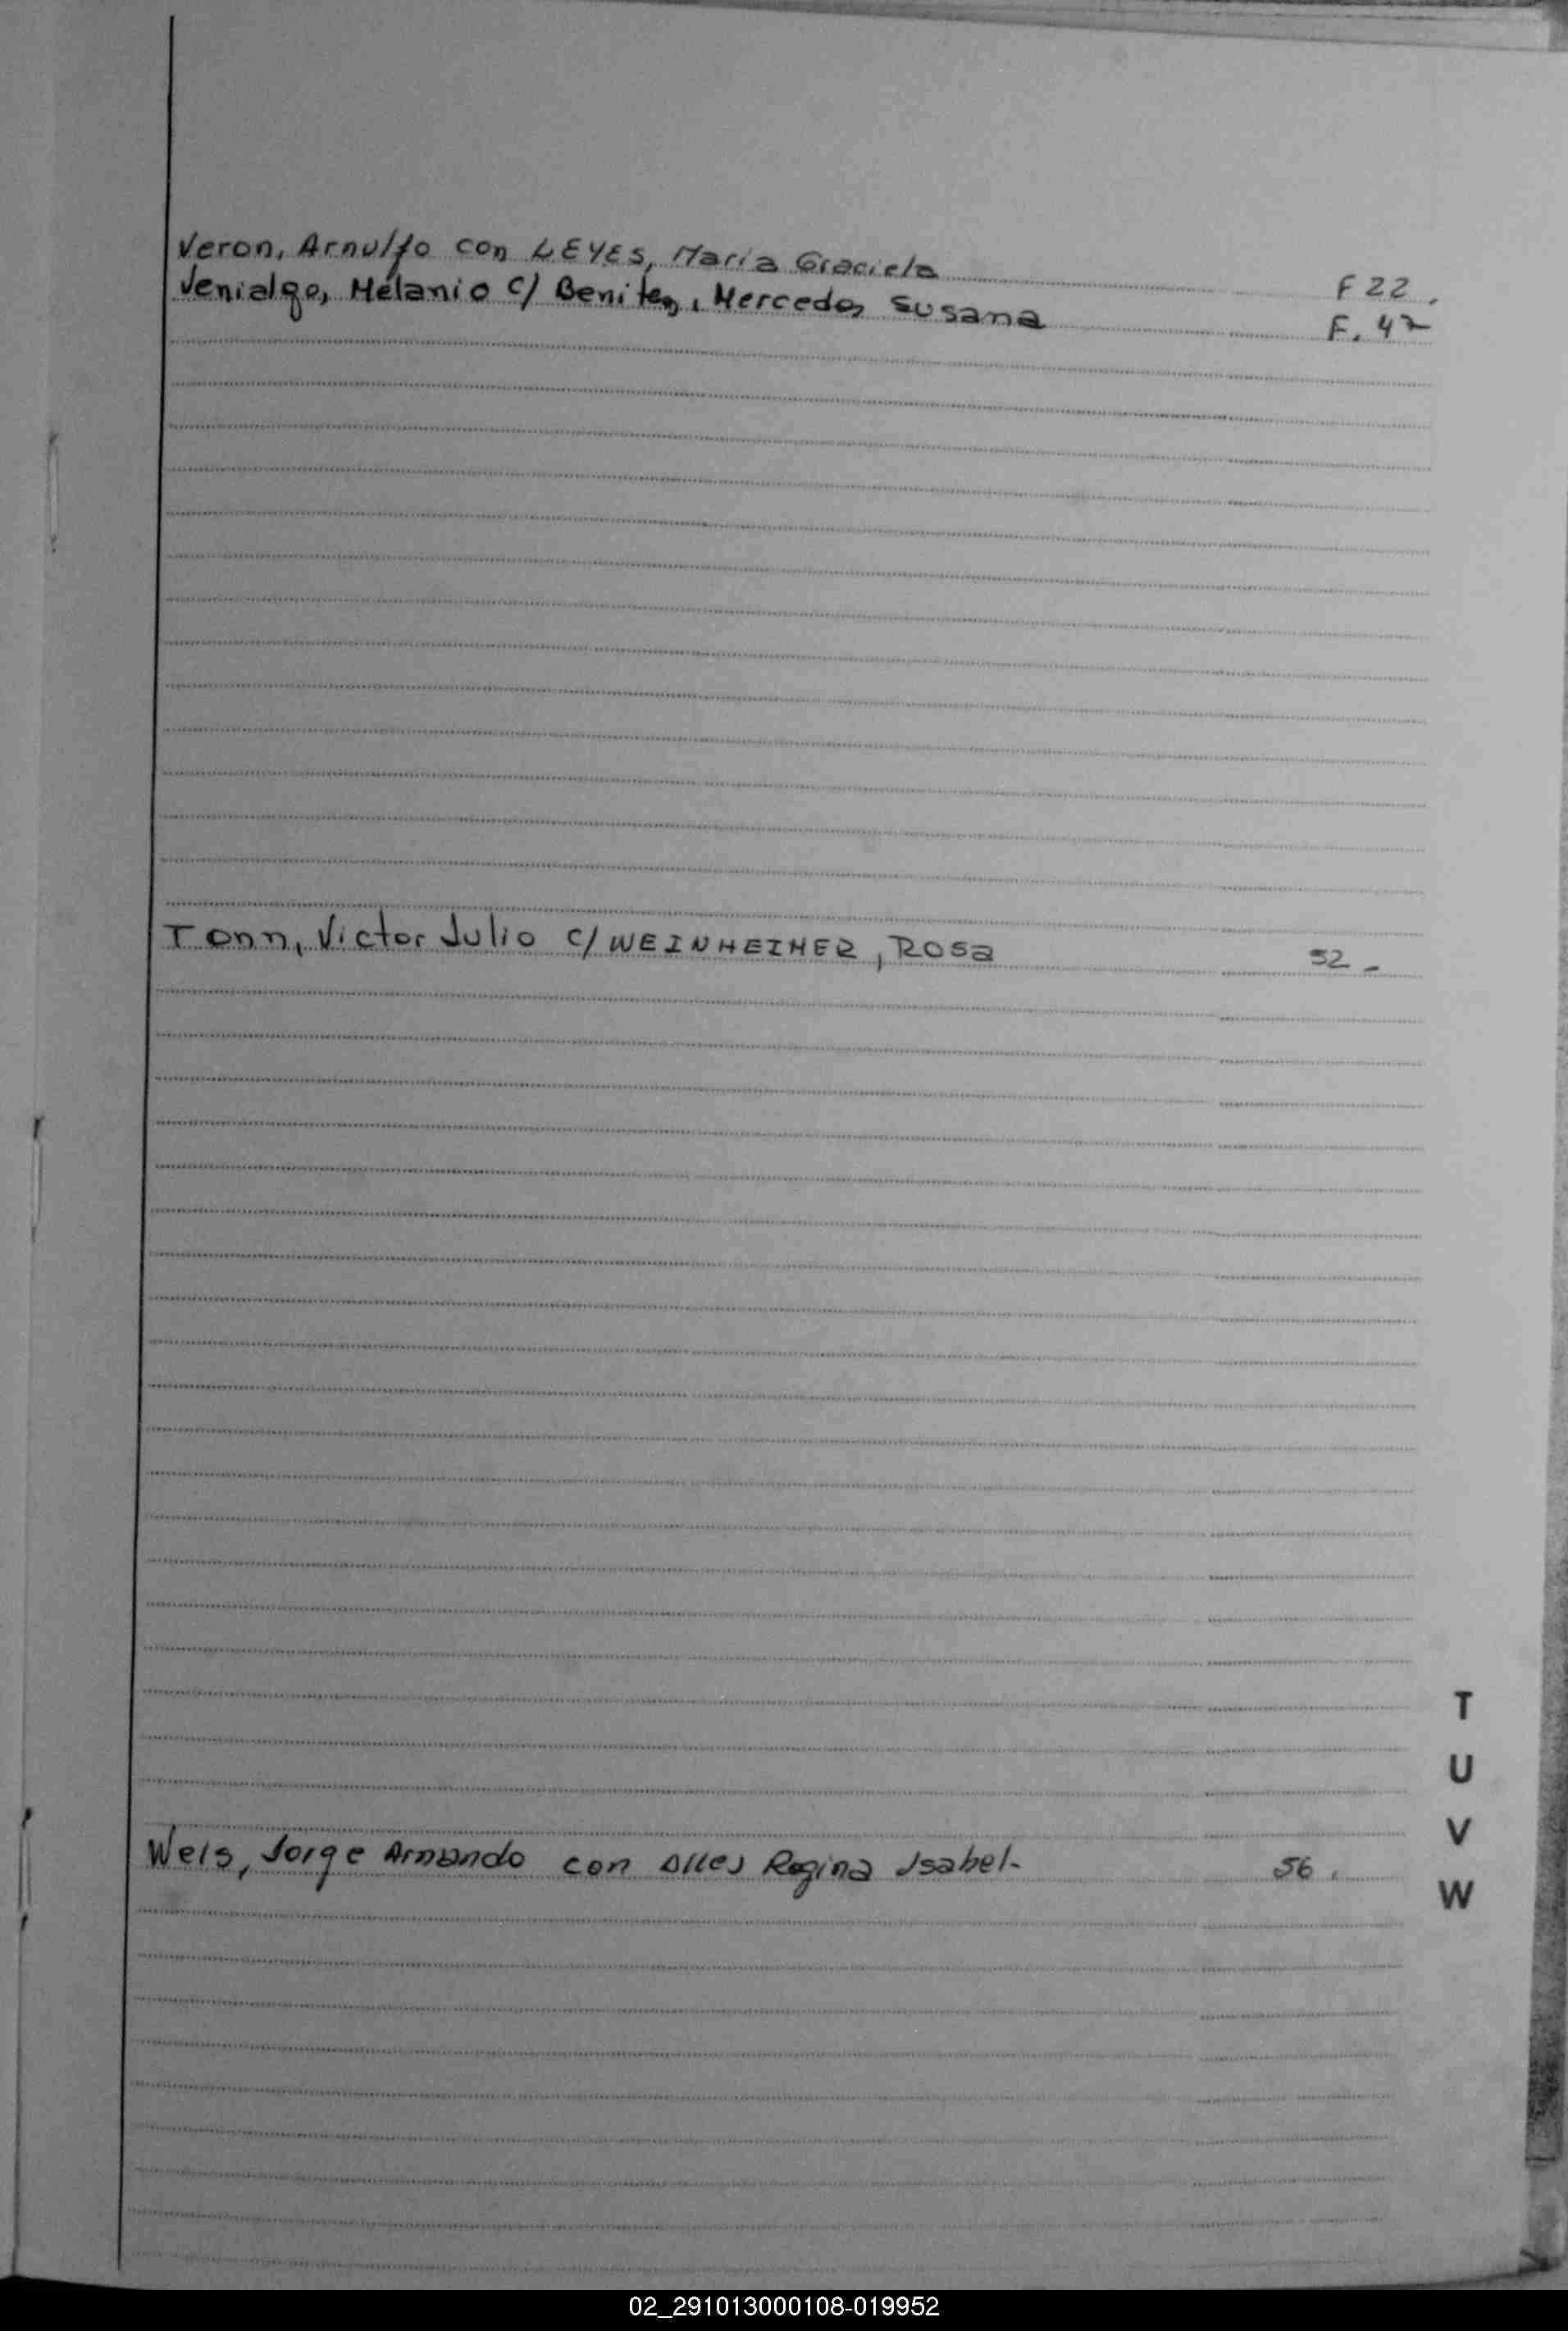 Veron, Arnulfo con LEYES, Maria Graciela F 22.
Venialgo, Melanio c/ Benitez, Mercedes Susana F. 47
Tonn, Victor Julio c/ WEINHEIMER, Rosa 52-
Weis, Jorge Armando con Alles Regina Isabel- 56.
T
U
V
W
02_291013000108-019952